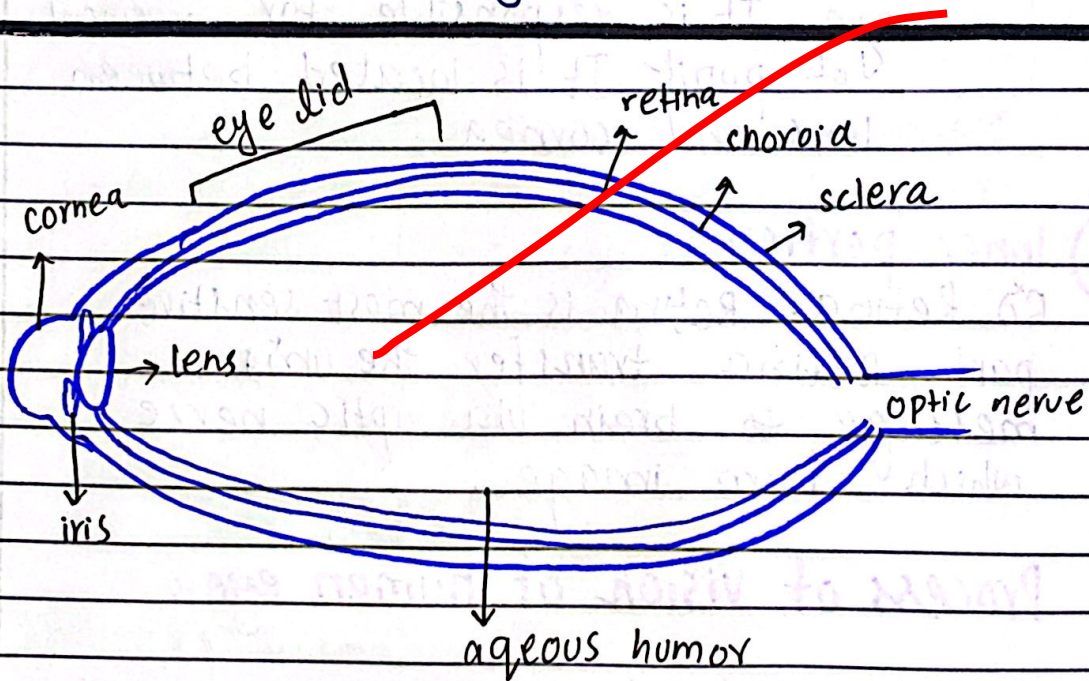 eye lid
retina
choroid
sclera
cornea
lens.
optic nerve
iris
aqeous humor